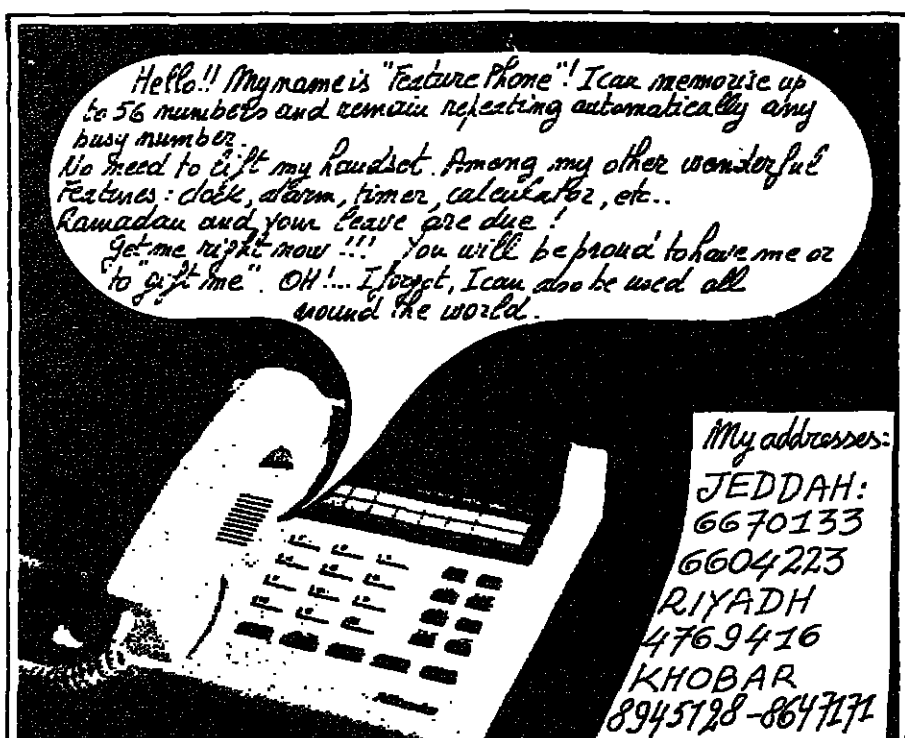 Hello!! My name is "Feature Phone"! I can memorize up
to 56 numbers and remain repeating automatically any
busy number.
No need to lift my handset. Among my other wonderful
Features: clock, alarm, timer, calculator, etc..
Ramadan and your leave are due!
Get me right now!!! You will be proud to have me or
to "gift me". OH!... I forgot, I can also be used all
around the world.
My addresses:
JEDDAH:
6670133
6604223
RIYADH
4769416
KHOBAR
8945128-8647171